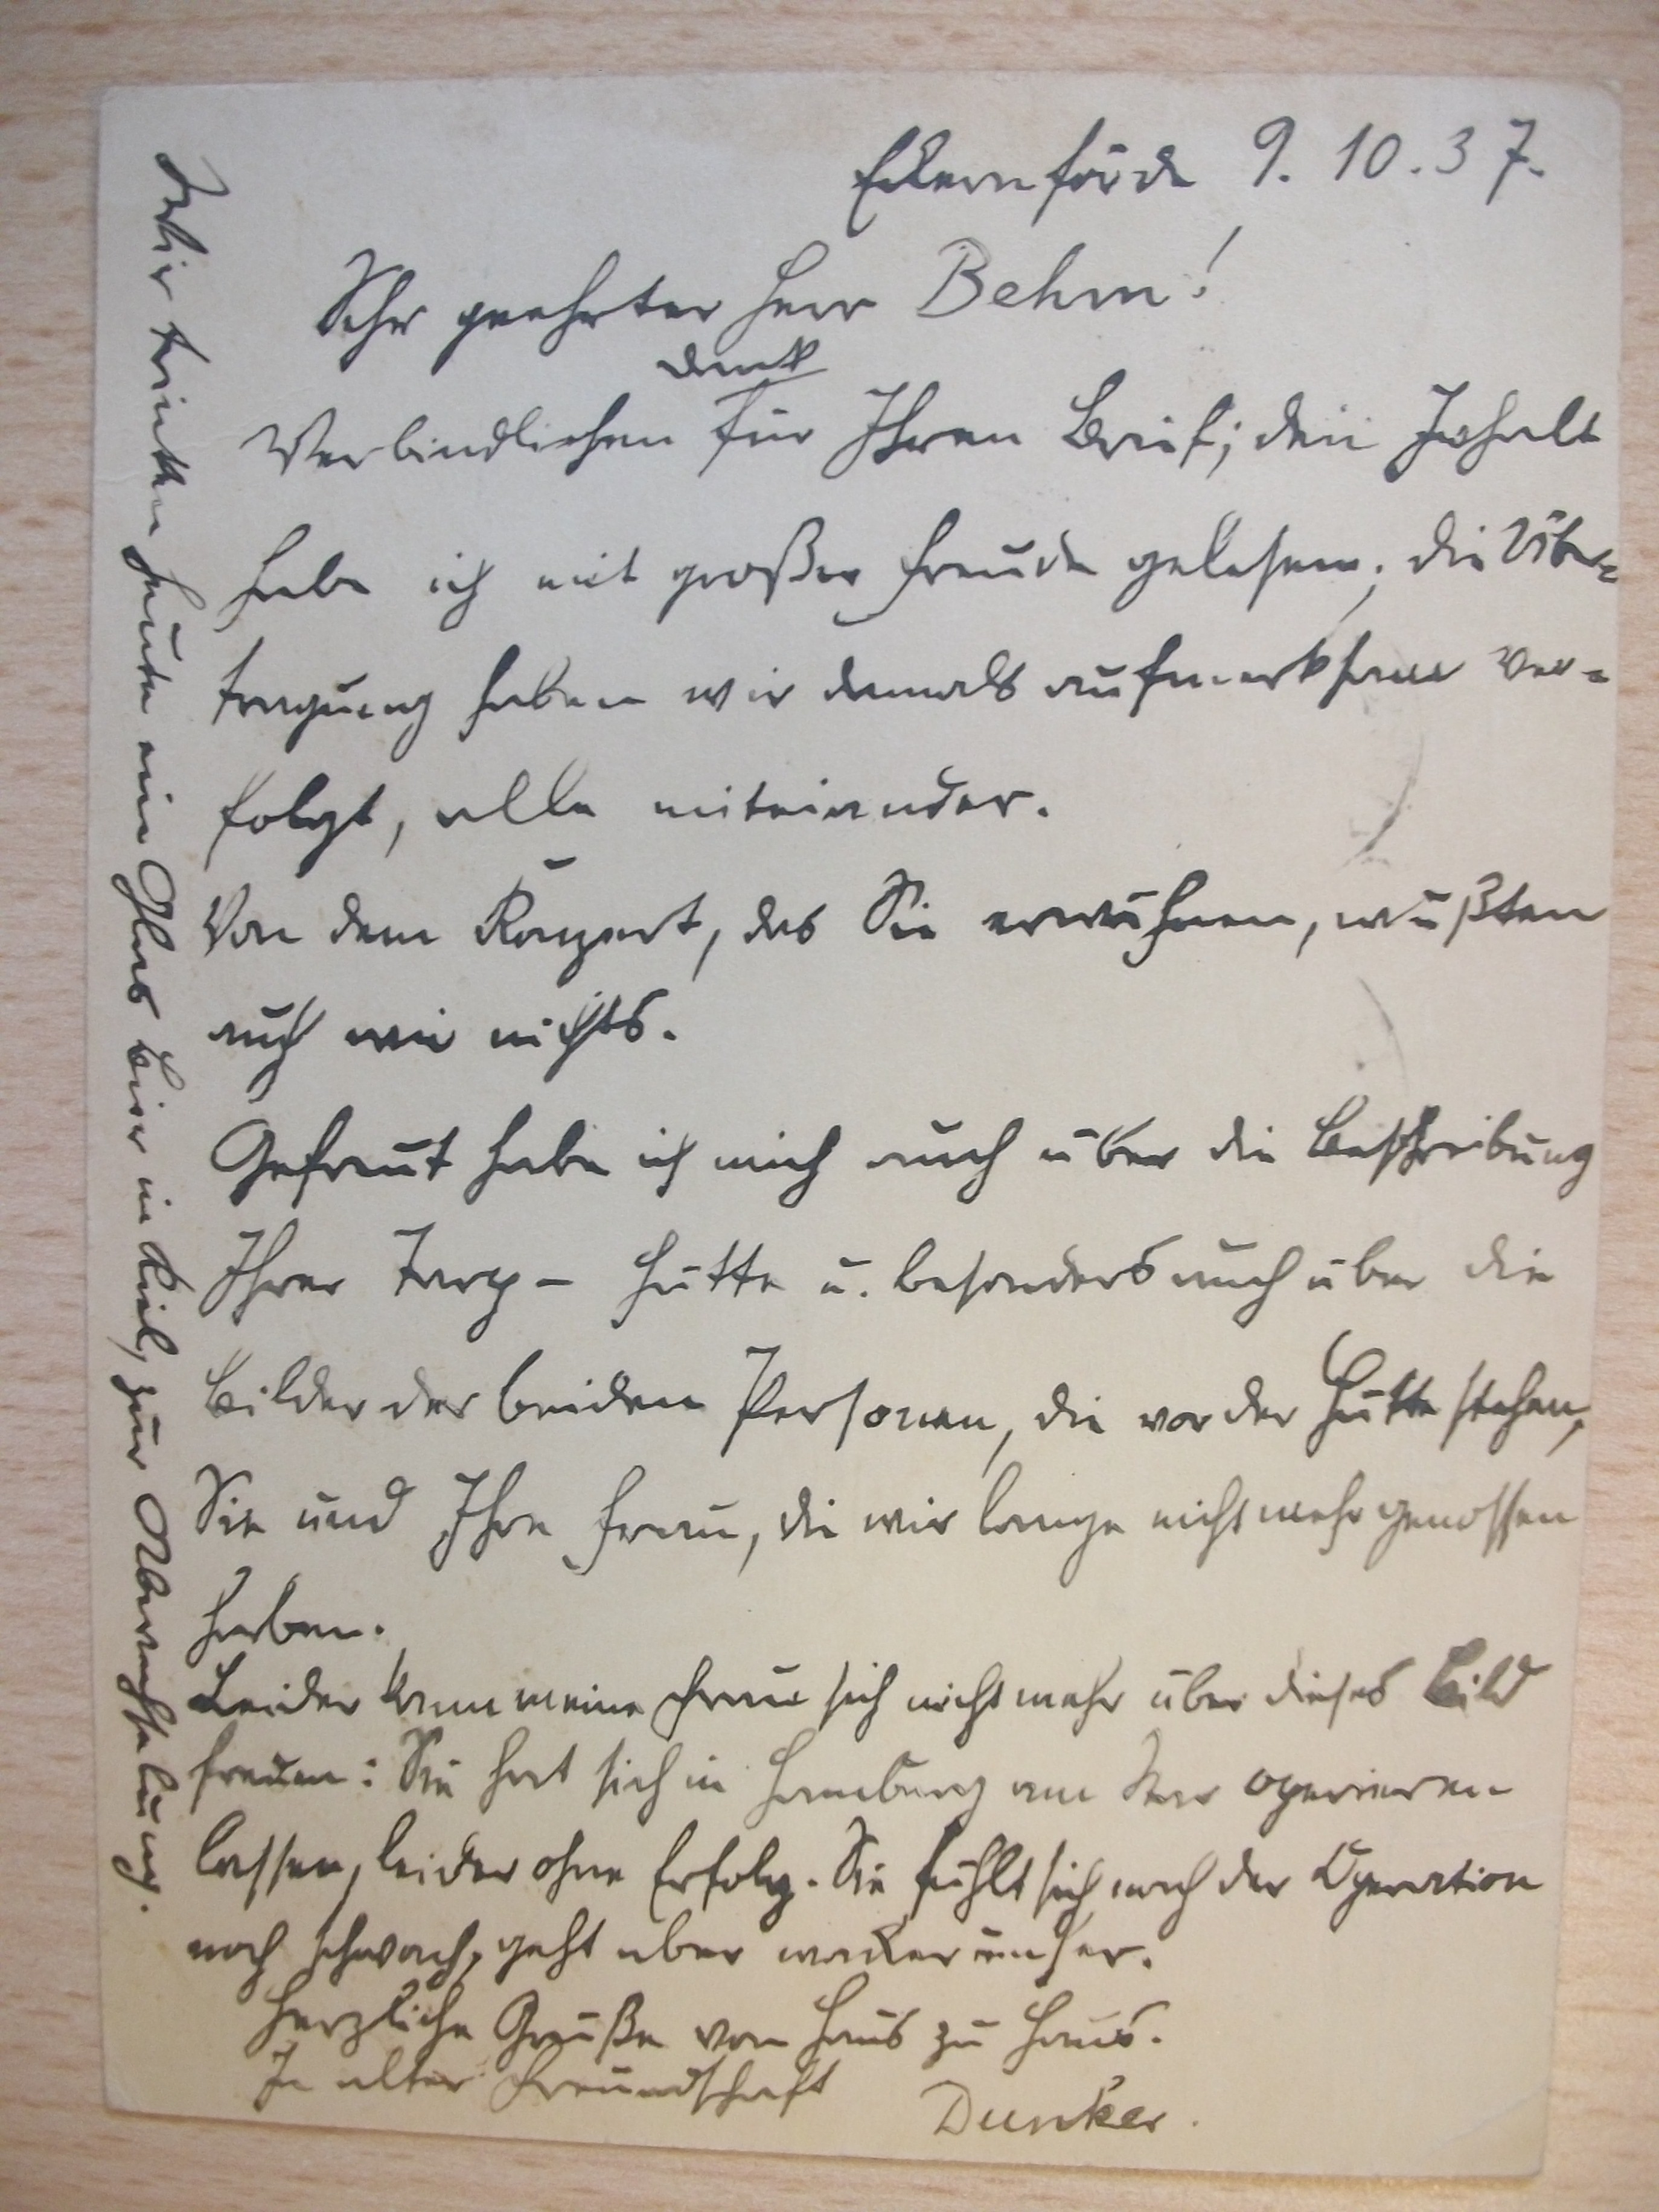 Eckernförde 9.10.37.
Sehr geehrter Herr Behm!
Dank
Verbindlichen für Ihren Brief; den Inhalt
habe ich mit großer Freude gelesen; die Über-
tragung haben wir damals aufmerksam ver-
folgt, alle miteinander.
Von dem Konzert, das Sie erwähnen, wußten
auch wir nichts.
Gefreut habe ich mich auch über die Beschreibung
Ihrer Tarp- Hütte u. besonders auch über die
Bilder der beiden Personen, die vor der Hütte stehen,
Sie und Ihre Frau, die wir lange nicht mehr genossen
haben.
Leider kann meine Frau sich nicht mehr über dieses Bild
freuen: Sie hat sich in Hamburg am Star operieren
lassen, leider ohne Erfolg. Sie fühlt sich nach der Operation
noch schwach, geht aber wacker umher.
Herzliche Grüße von Haus zu Haus.
In alter Freundschaft
Dunker.
trinken heute ein Glas Bier in Kiel, zur